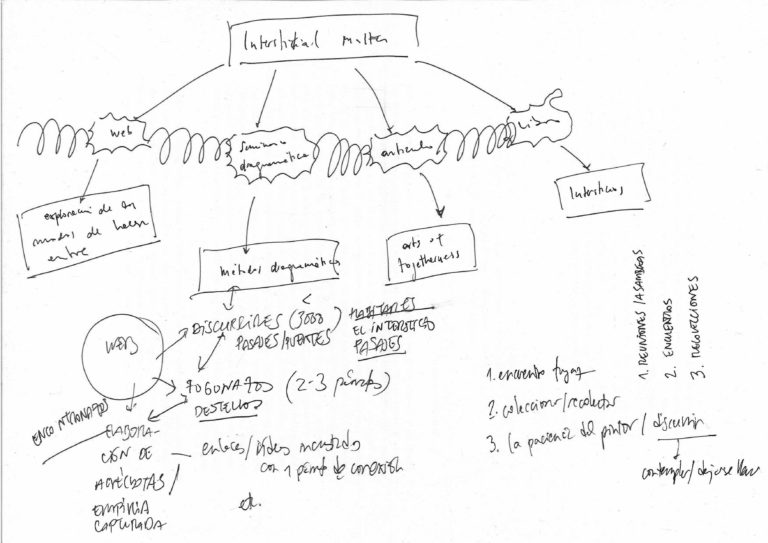 Interstitial matter
web
seminario
diagramático
artículo
libro
exploración de los
modos de hacer
entre
métodos diagramáticos
arts of
togetherness
Intersticios
WEB
DISCURRIRES (3000
PASAJES/PUENTES
HABITARES
EL INTERSTICIO
PASAJES
FOGONAZOS (2-3 párrafos)
DESTELLOS
ENCONTRONAZOS
ELABORA-
CIÓN DE
ANÉCDOTAS
EMPIRIA
CAPTURADA
enlaces/vídeos incrustados
con 1 párrafo de conexión
etc.
1. REUNIONES/ASAMBLEAS
2. ENCUENTROS
3.
1. encuentro fugaz
2. coleccionar/recolectar
3. la paciencia del pintor/discurrir
contemplar/dejarse llevar